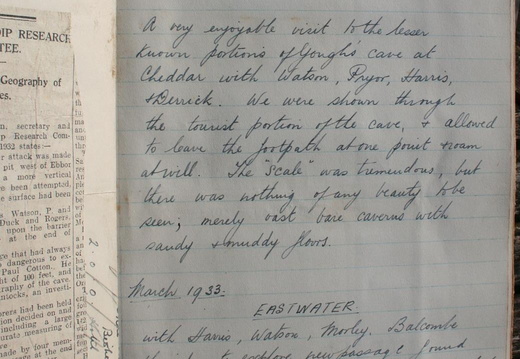 DIP RESEARCH
TEE.
Geography of
es.
n, secretary and
ip Research Com-
1932 states:—
r attack was made
pit west of Ebbor
a more vertical
been attempted,
e surface had been
s Watson, P. and
Duck and Rogers.
upon the barrier
at the end of
ge that had always
dangerous to ex-
Paul Cotton. He
ht of 100 feet, and
graphy of the cave.
ntocks, an investi-
orers had been held
ition decided on and
including a large
urate measuring of
made by four mem-
A very enjoyable visit to the lesser
known portions of Gough's cave at
Cheddar with Watson, Pryor, Harris,
+ Derrick. We were shown through
the tourist portion of the cave, + allowed
to leave the footpath at one point + roam
at will. The "Scale" was tremendous, but
there was nothing of any beauty to be
seen; merely vast bare caverns with
sandy + muddy floors.
March 1933:
EASTWATER
with Harris, Watson, Morley, Balcombe
new passage found